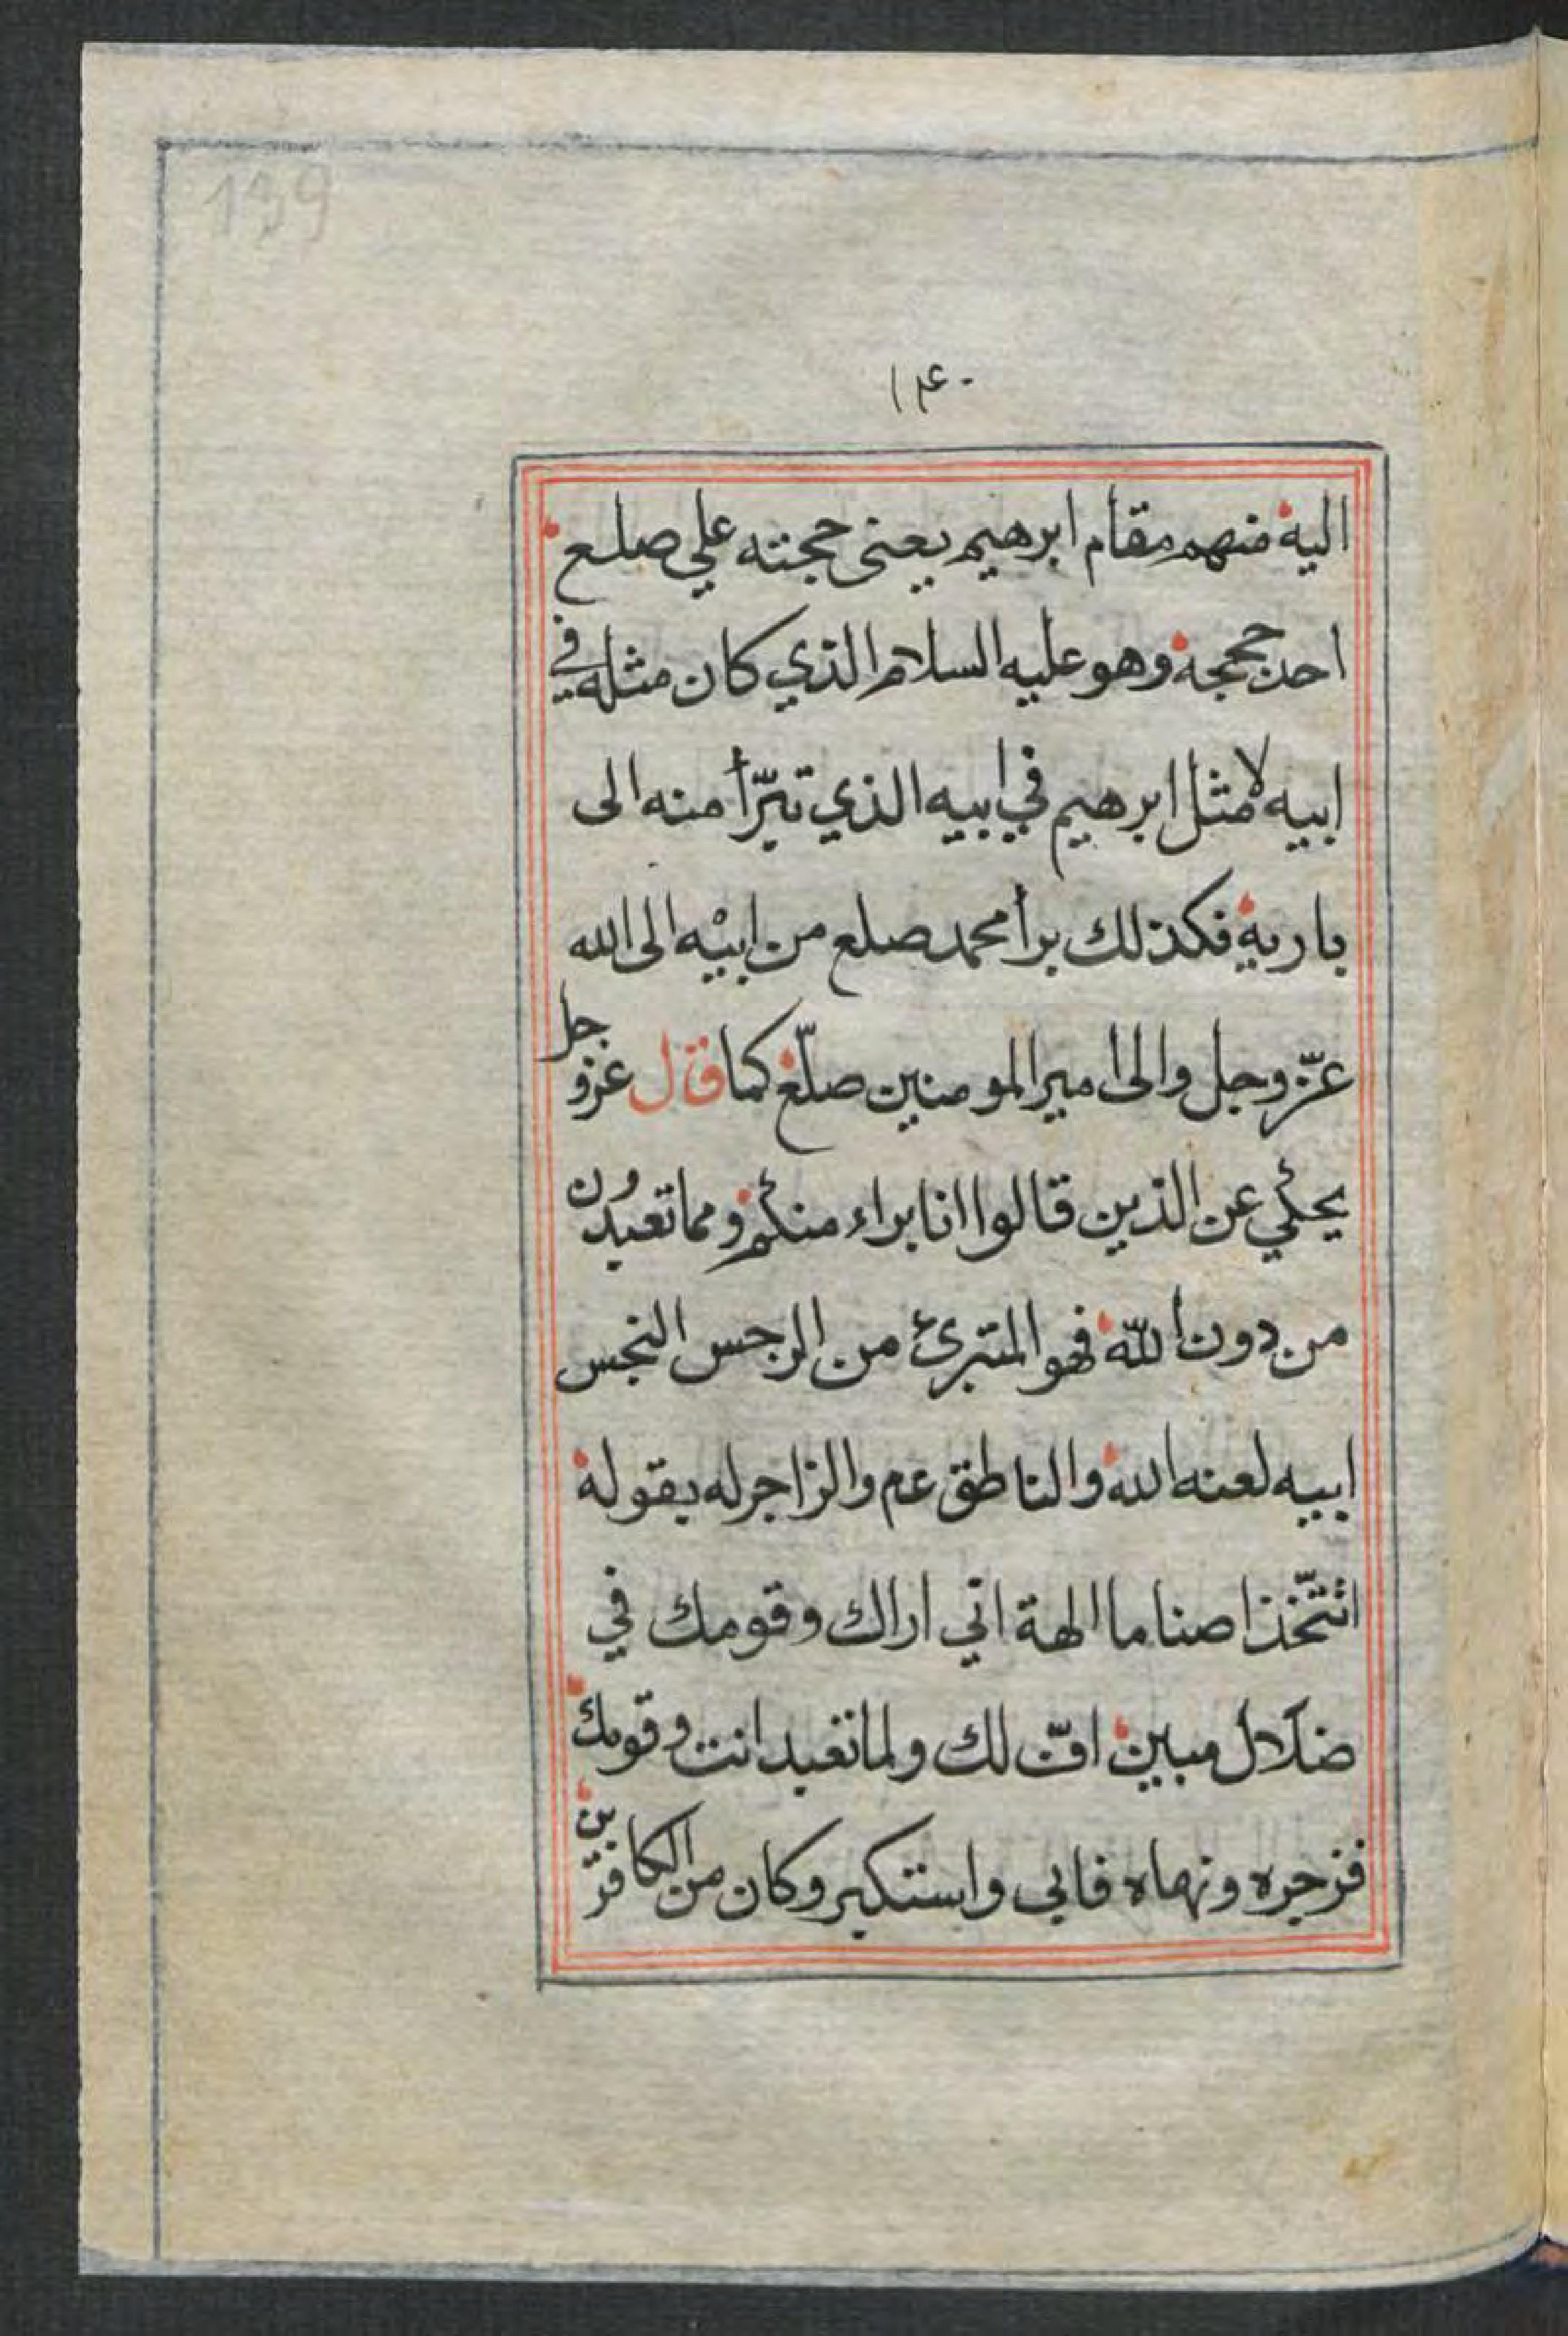 139
١٤٠
اليه منهم مقام ابرهيم يعنى حجته علي صلع
احد حججه وهو عليه السلام الذي كان مثله في
ابيه لا مثل ابرهيم في ابيه الذي تبرّأ منه الى
باريه فكذلك برأ محمد صلع من ابيه الى الله
عزّ وجل والى امير المومنين صلّع كما قال عز وجل
يحكي عن الذين قالوا انا براء منكم ومما تعبدون
من دون اللّه فهو المتبرئ من الرجس النجس
ابيه لعنه الله والناطق عم والزاجر له بقوله
اتتّخذ اصناما الهة اني اراك وقومك في
ضلال مبين افّ لك ولما تعبد انت وقومك
فزجره ونهاه فابى واستكبر وكان من الكافرين